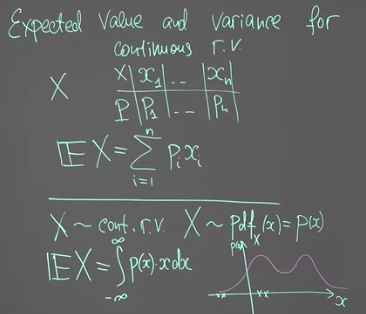 Expected value and variance for
continuous r.v.
X
X | x₁ | ... | xₙ
P | P₁ | ... | Pₙ
𝔼X = ∑ᵢ₌₁ⁿ pᵢxᵢ
X ~ cont. r.v. X ~ pdf_X(x) = p(x)
𝔼X = ∫_{-∞}^{∞} p(x)·x dx
x